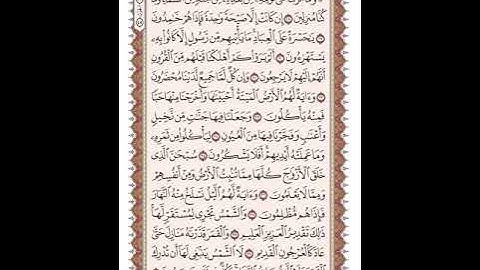 كُنَّا مُنزِلِينَ ۝ إِن كَانَتْ إِلَّا صَيْحَةً وَٰحِدَةً فَإِذَا هُمْ خَٰمِدُونَ
۝ يَٰحَسْرَةً عَلَى ٱلْعِبَادِ مَا يَأْتِيهِم مِّن رَّسُولٍ إِلَّا كَانُوا۟ بِهِۦ
يَسْتَهْزِءُونَ ۝ أَلَمْ يَرَوْا۟ كَمْ أَهْلَكْنَا قَبْلَهُم مِّنَ ٱلْقُرُونِ
أَنَّهُمْ إِلَيْهِمْ لَا يَرْجِعُونَ ۝ وَإِن كُلٌّ لَّمَّا جَمِيعٌ لَّدَيْنَا مُحْضَرُونَ
۝ وَءَايَةٌ لَّهُمُ ٱلْأَرْضُ ٱلْمَيْتَةُ أَحْيَيْنَٰهَا وَأَخْرَجْنَا مِنْهَا حَبًّا
فَمِنْهُ يَأْكُلُونَ ۝ وَجَعَلْنَا فِيهَا جَنَّٰتٍ مِّن نَّخِيلٍ
وَأَعْنَٰبٍ وَفَجَّرْنَا فِيهَا مِنَ ٱلْعُيُونِ ۝ لِيَأْكُلُوا۟ مِن ثَمَرِهِۦ
وَمَا عَمِلَتْهُ أَيْدِيهِمْ أَفَلَا يَشْكُرُونَ ۝ سُبْحَٰنَ ٱلَّذِى
خَلَقَ ٱلْأَزْوَٰجَ كُلَّهَا مِمَّا تُنۢبِتُ ٱلْأَرْضُ وَمِنْ أَنفُسِهِمْ
وَمِمَّا لَا يَعْلَمُونَ ۝ وَءَايَةٌ لَّهُمُ ٱلَّيْلُ نَسْلَخُ مِنْهُ ٱلنَّهَارَ
فَإِذَا هُم مُّظْلِمُونَ ۝ وَٱلشَّمْسُ تَجْرِى لِمُسْتَقَرٍّ لَّهَا
ذَٰلِكَ تَقْدِيرُ ٱلْعَزِيزِ ٱلْعَلِيمِ ۝ وَٱلْقَمَرَ قَدَّرْنَٰهُ مَنَازِلَ حَتَّىٰ
عَادَ كَٱلْعُرْجُونِ ٱلْقَدِيمِ ۝ لَا ٱلشَّمْسُ يَنۢبَغِى لَهَآ أَن تُدْرِكَ